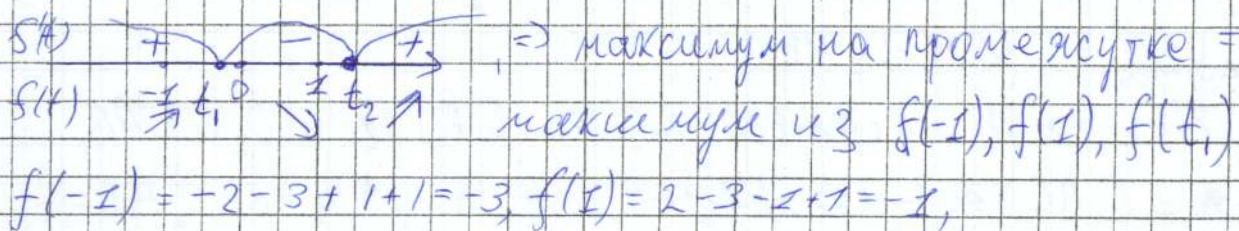 f'(t) + − + => максимум на промежутке =
f(t) -1 t₁ 0 1 t₂ максимум из f(-1), f(1), f(t₁)
f(-1) = -2-3+1+1=-3, f(1) = 2-3-1+1=-1,